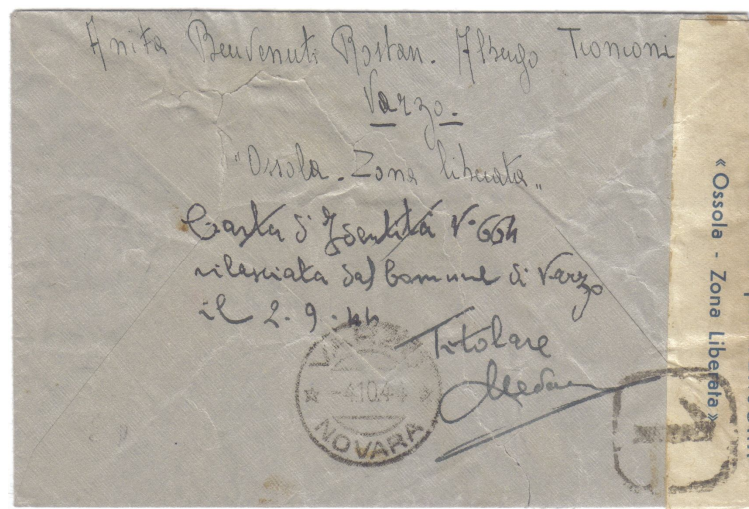 Anita Benvenuti Rostan. Albergo Troncone
Varzo.
"Ossola - Zona liberata"
Carta d'Identitá N. 664
rilasciata dal Comune di Varzo
il 2.9.44
Titolare
VARZO
-4.10.44
NOVARA
«Ossola - Zona Liberata»